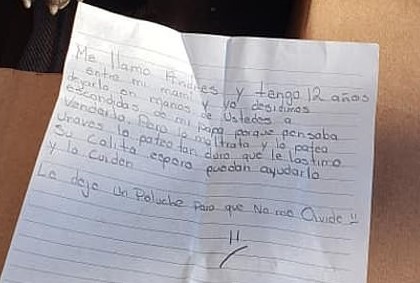 Me llamo Andres y tengo 12 años
entre mi mamá y yo desidimos
dejarlo en manos de Ustedes a
escondidas de mi papá porque pensaba
Venderlo. Pero lo maltrata y lo patea
unaves lo pateo tan duro que le lastimo
su colita espero puedan ayudarlo
y lo cuiden
Le deje un Peluche para que No me Olvide !!